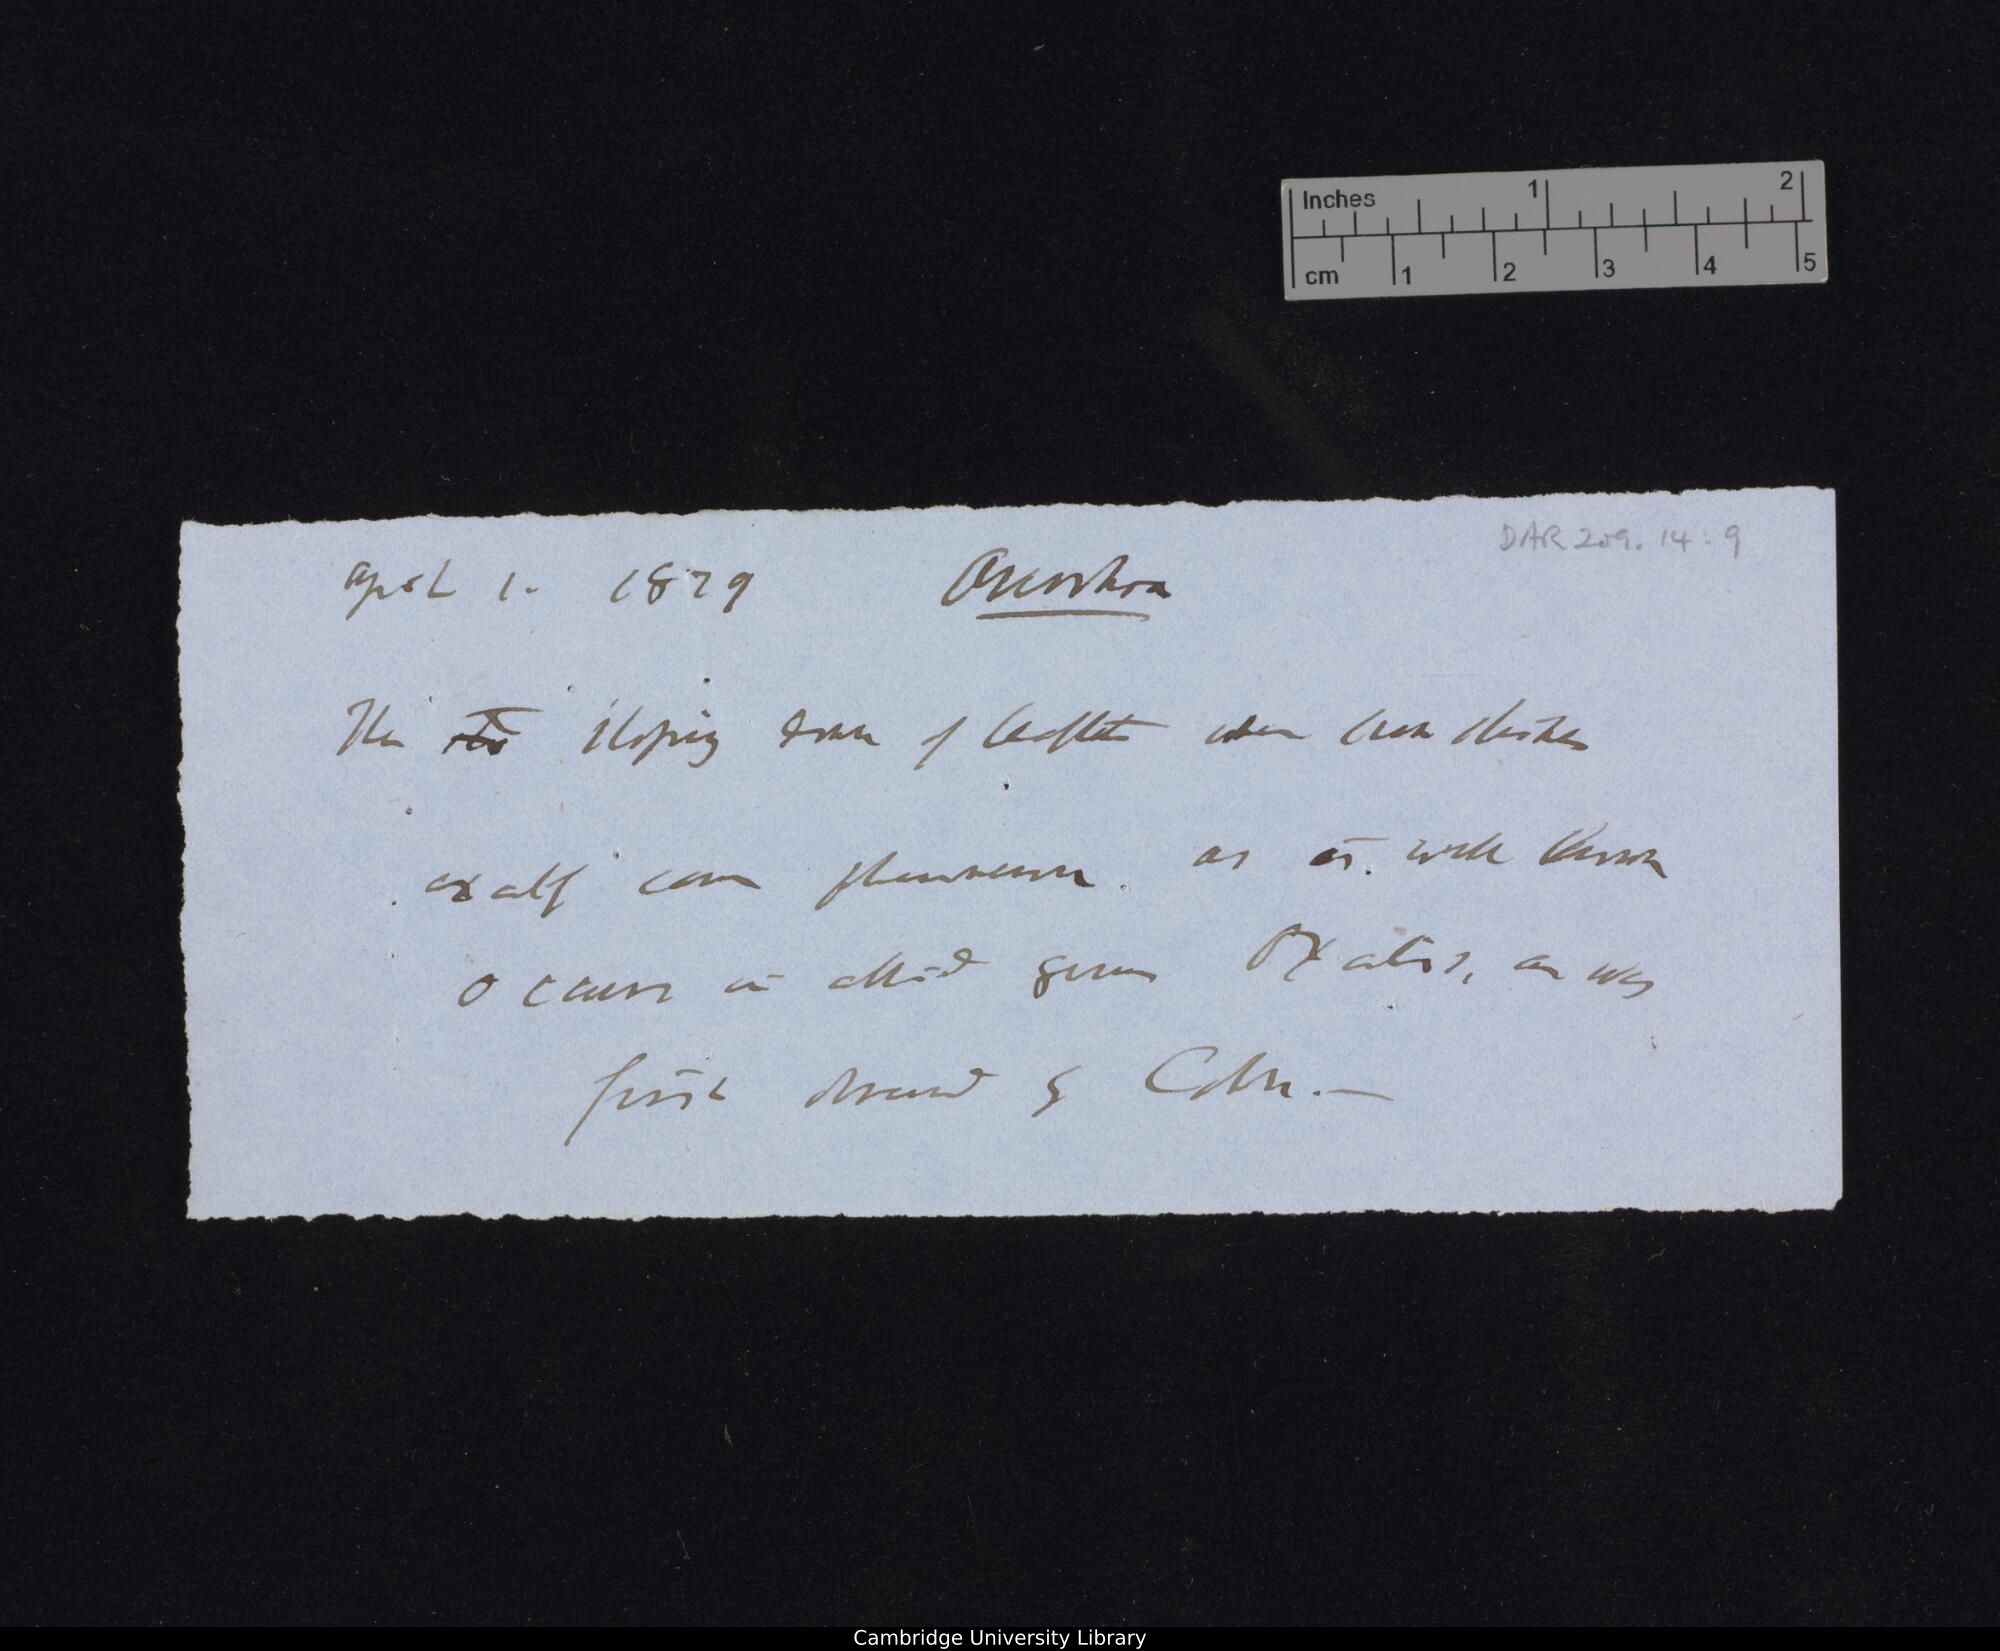 Inches 1 2
cm 1 2 3 4 5
DAR 209.14:9
April 1. 1879 Averrhoa
The sloping down of leaflets when sun shines
exactly same phenomenon as is well known
occurs in allied genus Oxalis, as was
first observed by Cohn.—
Cambridge University Library